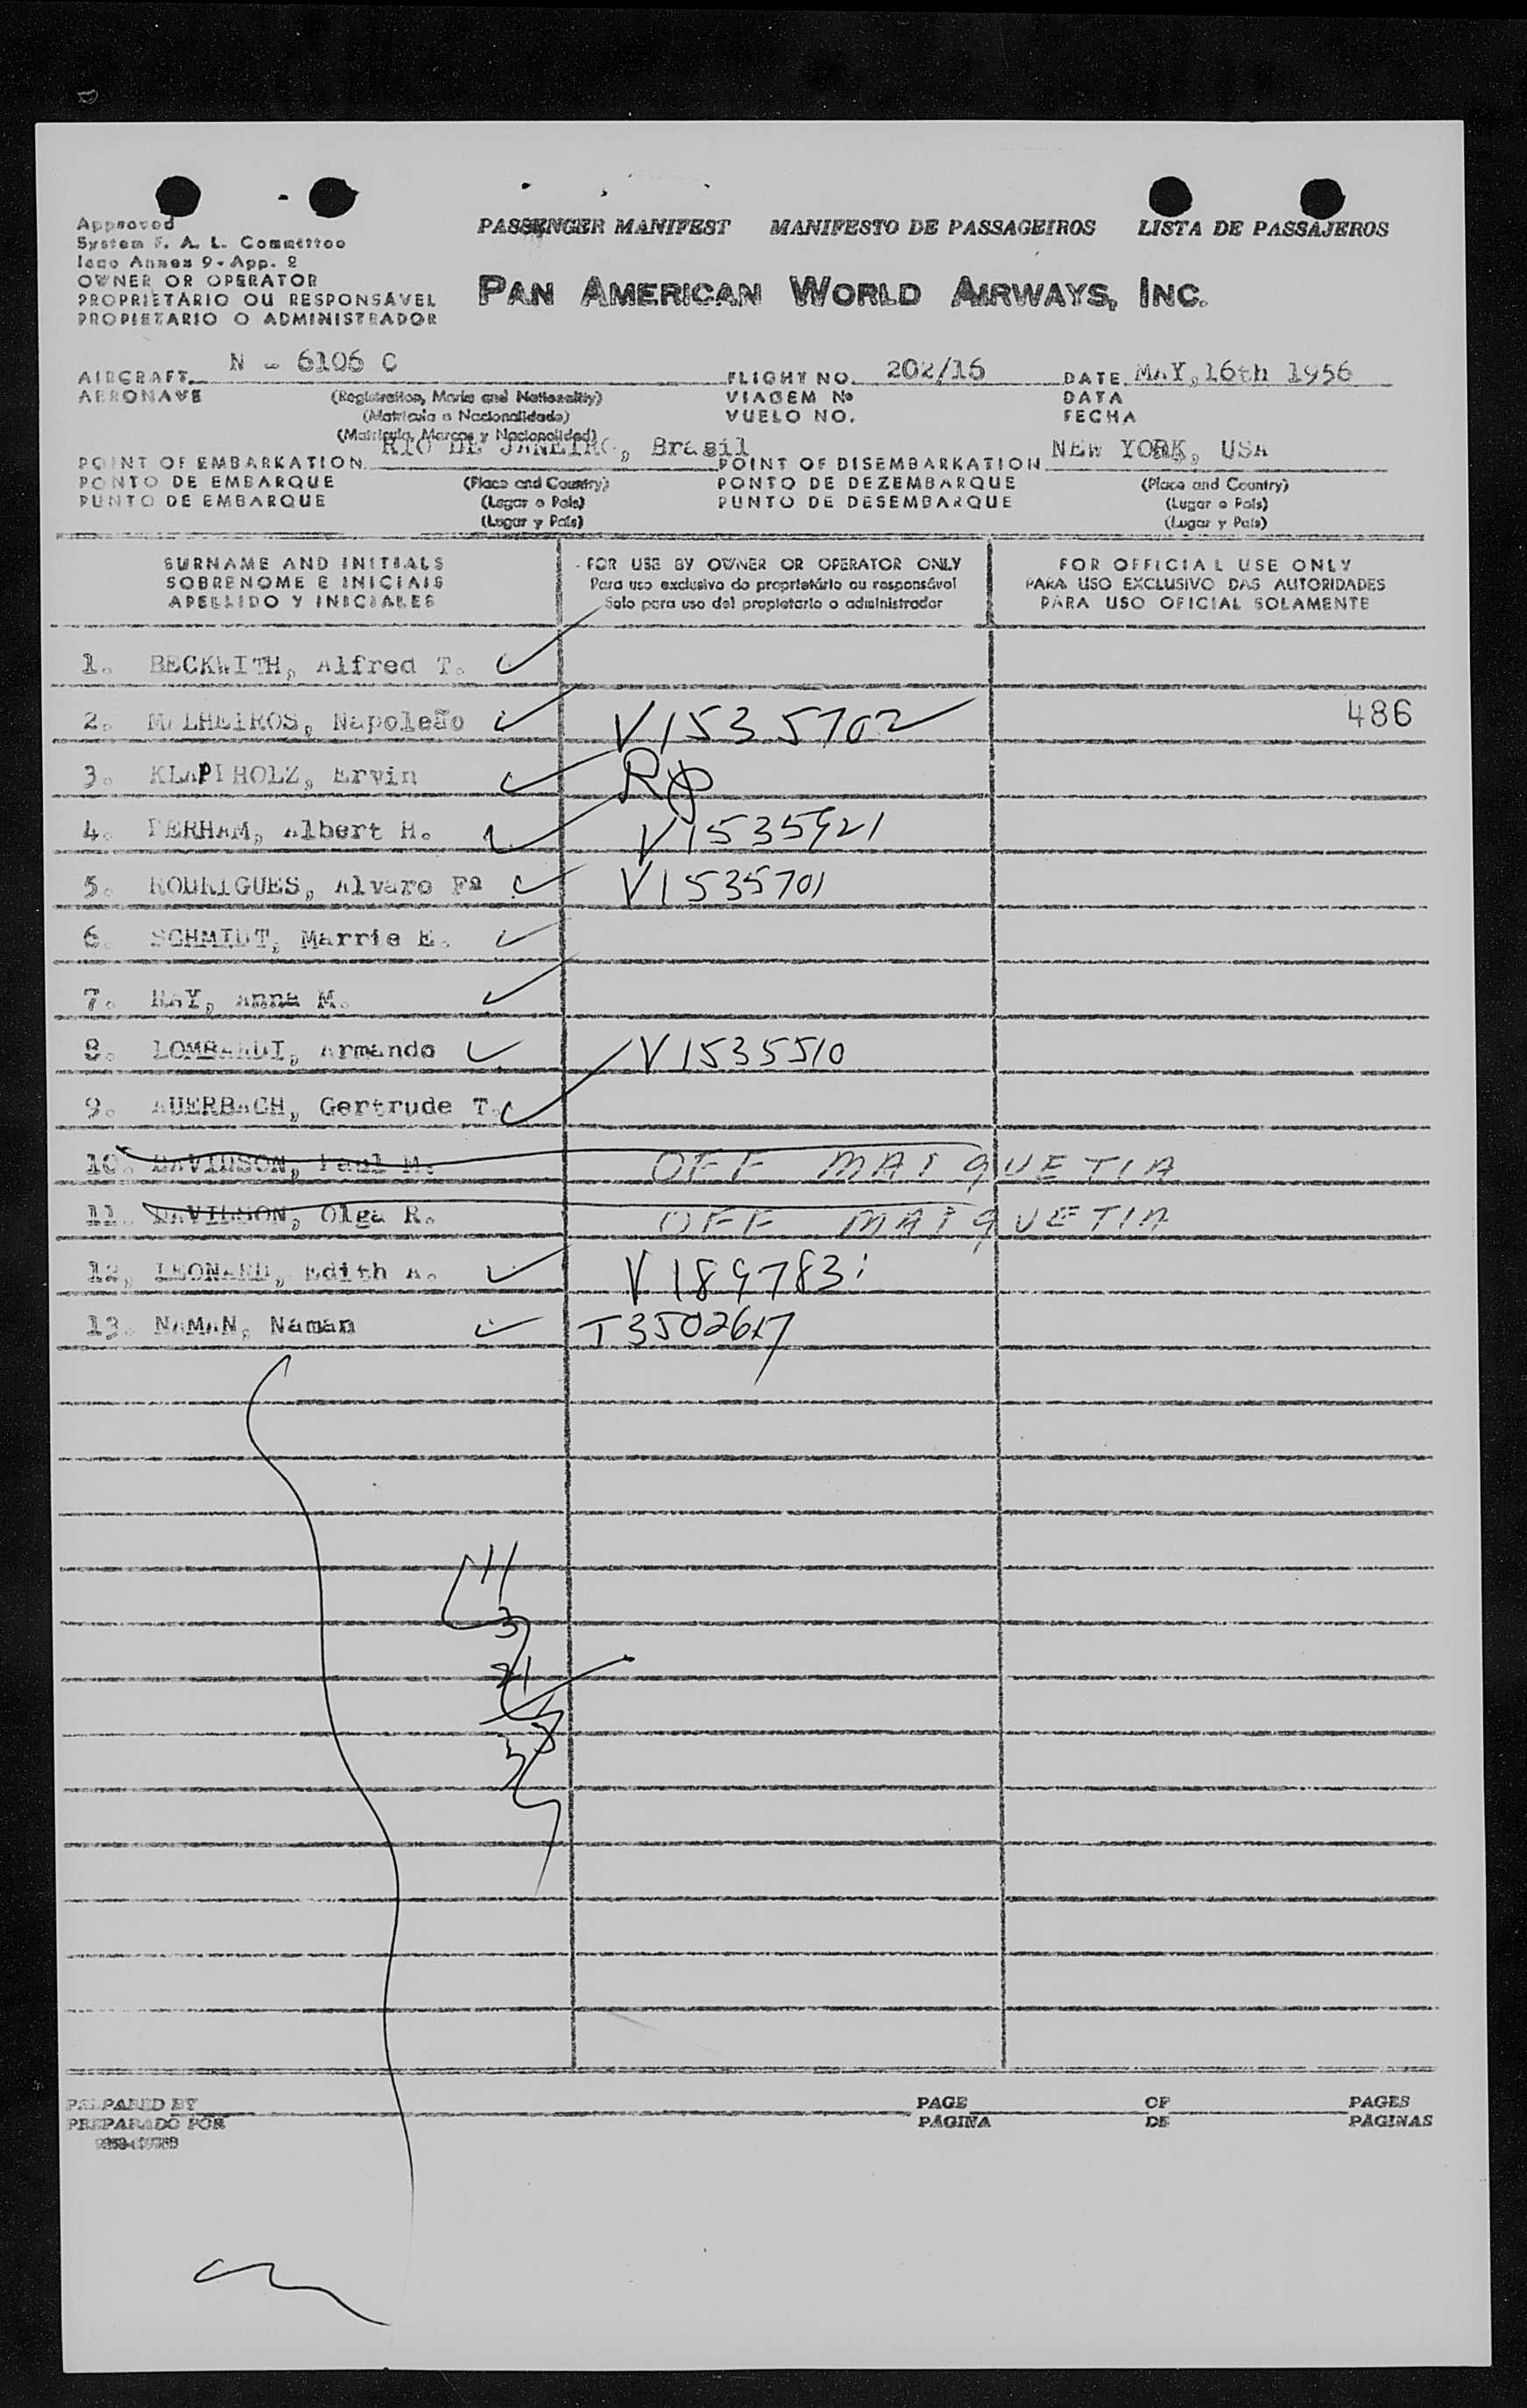 Approved
System F. A. L. Committee
Icao Annex 9 - App. 2
OWNER OR OPERATOR
PROPRIETÁRIO OU RESPONSÁVEL
PROPIETARIO O ADMINISTRADOR
PASSENGER MANIFEST MANIFESTO DE PASSAGEIROS LISTA DE PASSAJEROS
PAN AMERICAN WORLD AIRWAYS, INC.
AIRCRAFT N - 6106 C FLIGHT NO. 202/16 DATE MAY, 16th 1956
AERONAVE (Registration, Marks and Nationality) VIAGEM Nº DATA
(Matricula e Nacionalidade) VUELO NO. FECHA
(Matricula, Marcas y Nacionalidad)
POINT OF EMBARKATION RIO DE JANEIRO, Brasil POINT OF DISEMBARKATION NEW YORK, USA
PONTO DE EMBARQUE (Place and Country) PONTO DE DEZEMBARQUE (Place and Country)
PUNTO DE EMBARQUE (Lugar e Pais) PUNTO DE DESEMBARQUE (Lugar e Pais)
(Lugar y País) (Lugar y País)
SURNAME AND INITIALS FOR USE BY OWNER OR OPERATOR ONLY FOR OFFICIAL USE ONLY
SOBRENOME E INICIAIS Para uso exclusivo do proprietário ou responsável PARA USO EXCLUSIVO DAS AUTORIDADES
APELLIDO Y INICIALES Solo para uso del propietario o administrador PARA USO OFICIAL SOLAMENTE
1. BECKWITH, Alfred T.
2. MALHEIROS, Napoleão V1535702 486
3. KLAPPHOLZ, Ervin Rp
4. PERHAM, Albert H. V1535921
5. RODRIGUES, Alvaro Fº V1535701
6. SCHMIDT, Marrie E.
7. RAY, Anna M.
8. LOMBARDI, Armando V1535510
9. AUERBACH, Gertrude T.
10. DAVIDSON, Paul M. OFF MAIQUETIA
11. DAVIDSON, Olga R. OFF MAIQUETIA
12, LEONARD, Edith A. V189783
13. NAMAN, Naman T3502617
11
3
21
PREPARED BY PAGE OF PAGES
PREPARADO POR PÁGINA DE PÁGINAS